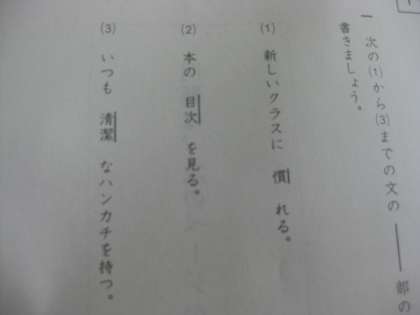 一 次の(1)から(3)までの文の 部の
書きましょう。
(1) 新しいクラスに 慣 れる。
(2) 本の 目次 を見る。
(3) いつも 清潔 なハンカチを持つ。